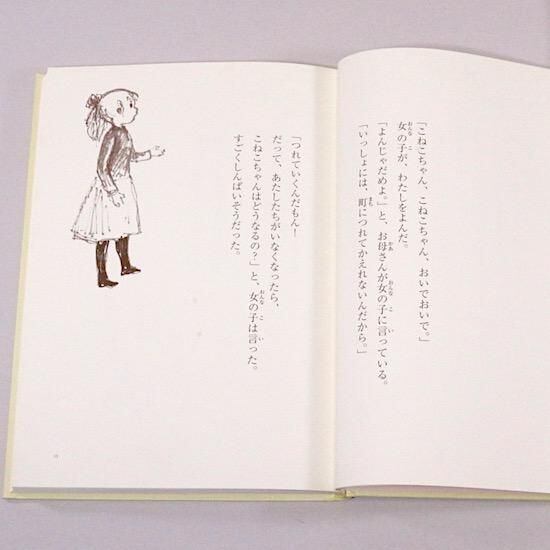 「こねこちゃん、こねこちゃん、おいでおいで。」
女の子が、わたしをよんだ。
「よんじゃだめよ。」と、お母さんが女の子に言っている。
「いっしょには、町につれてかえれないんだから。」
「つれていくんだもん！
だって、あたしたちがいなくなったら、
こねこちゃんはどうなるの？」と、女の子は言った。
すごくしんぱいそうだった。